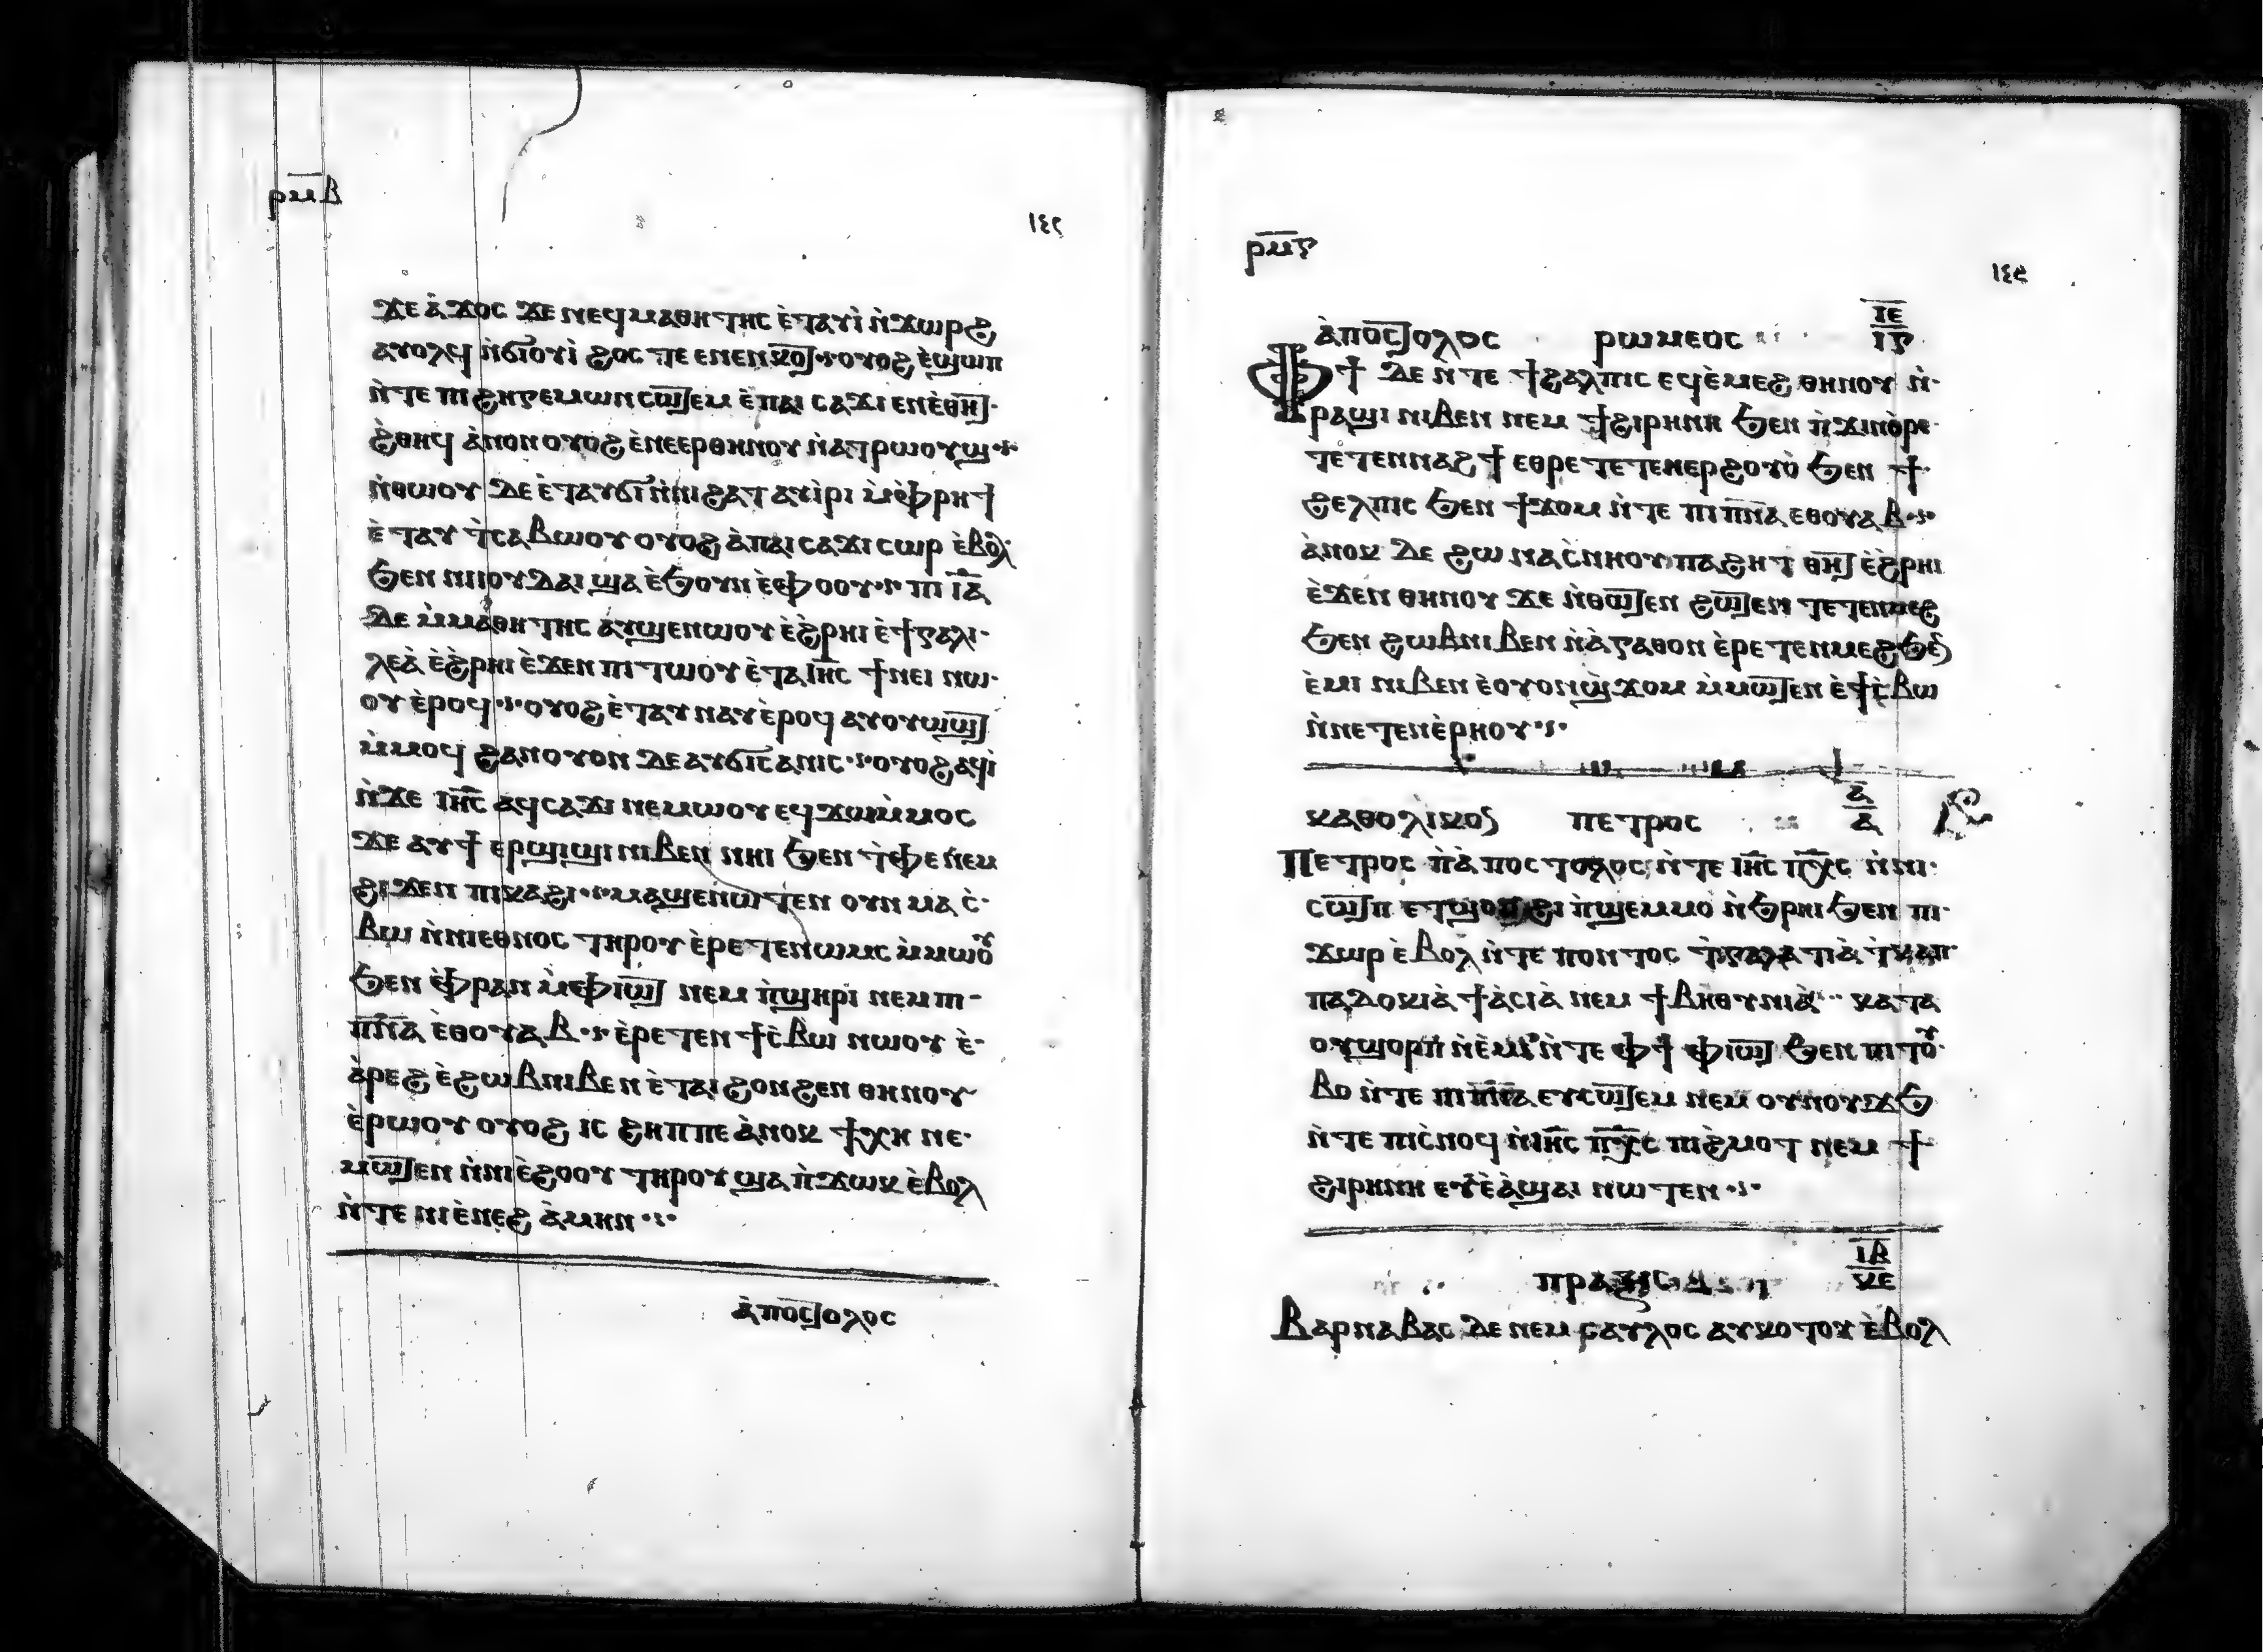 ⲣⲙ̅ⲃ
١٤٢
ϫⲉ ⲁ̀ϫⲟⲥ ϫⲉ ⲛⲉϥⲙⲁⲑⲏⲧⲏⲥ ⲉ̀ⲧⲁⲩⲓ̀ ⲛ̀ϫⲱⲣϩ
ⲁⲩⲟⲗϥ ⲛ̀ϭⲓⲟⲩⲓ̀ ϩⲟⲥ ⲧⲉ ⲉⲛⲉⲛⲕⲟⲧ ⲟⲩⲟϩ ⲉ̀ϣⲱⲡ
ⲛ̀ⲧⲉ ⲡⲓϩⲏⲅⲉⲙⲱⲛ ⲥⲱⲧⲉⲙ ⲉ̀ⲡⲁⲓ ⲥⲁϫⲓ ⲉⲛⲉ̀ⲑⲏⲧ
ϩ̀ⲑⲏϥ ⲁ̀ⲛⲟⲛ ⲟⲩⲟϩ ⲉ̀ⲛⲉⲉⲣⲑⲏⲛⲟⲩ ⲛ̀ⲁⲧⲣⲱⲟⲩϣ
ⲛ̀ⲑⲱⲟⲩ ⲇⲉ ⲉ̀ⲧⲁⲩϭⲓ ⲛ̀ⲛⲓϩⲁⲧ ⲁⲩⲓ̀ⲣⲓ ⲙ̀ⲫ̀ⲣⲏϯ
ⲉ̀ⲧⲁⲩ ⲧ̀ⲥⲁⲃⲱⲟⲩ ⲟⲩⲟϩ ⲁ̀ⲡⲁⲓ ⲥⲁϫⲓ ⲥⲱⲣ ⲉ̀ⲃⲟⲗ
ϧⲉⲛ ⲛⲓⲓⲟⲩⲇⲁⲓ ϣⲁ ⲉ̀ϧⲟⲩⲛ ⲉ̀ⲫⲟⲟⲩ ⲡⲓ ⲓ̅ⲁ̅
ⲇⲉ ⲙ̀ⲙⲁⲑⲏⲧⲏⲥ ⲁⲩϣⲉⲛⲱⲟⲩ ⲉ̀ϩ̀ⲣⲏⲓ ⲉ̀ϯⲅⲁⲗⲓ
ⲗⲉⲁ̀ ⲉ̀ϩ̀ⲣⲏⲓ ⲉ̀ϫⲉⲛ ⲡⲓⲧⲱⲟⲩ ⲉ̀ⲧⲁ ⲓⲏ̅ⲥ ϯⲛⲉⲓ ⲛⲱ
ⲟⲩ ⲉ̀ⲣⲟϥ ⲟⲩⲟϩ ⲉ̀ⲧⲁⲩ ⲛⲁⲩ ⲉ̀ⲣⲟϥ ⲁⲩⲟⲩⲱϣⲧ
ⲙ̀ⲙⲟϥ ϩⲁⲛⲟⲩⲟⲛ ⲇⲉ ⲁⲩϭⲓⲥⲁⲛⲓⲥ ⲟⲩⲟϩ ⲁϥⲓ̀
ⲛ̀ϫⲉ ⲓⲏ̅ⲥ ⲁϥⲥⲁϫⲓ ⲛⲉⲙⲱⲟⲩ ⲉϥϫⲱⲙ̀ⲙⲟⲥ
ϫⲉ ⲁⲩϯ ⲉⲣϣⲓϣⲓ ⲛⲓⲃⲉⲛ ⲛⲏⲓ ϧⲉⲛ ⲧ̀ⲫⲉ ⲛⲉⲙ
ϩⲓϫⲉⲛ ⲡⲓⲕⲁϩⲓ ⲙⲁϣⲉⲛⲱⲧⲉⲛ ⲟⲩⲛ ⲙⲁ ⲥ̀
ⲃⲱ ⲛ̀ⲛⲓⲉⲑⲛⲟⲥ ⲧⲏⲣⲟⲩ ⲉ̀ⲣⲉⲧⲉⲛⲱⲙⲥ ⲙ̀ⲙⲱⲟⲩ
ϧⲉⲛ ⲉ̀ⲫⲣⲁⲛ ⲙ̀ⲫⲓⲱⲧ ⲛⲉⲙ ⲡ̀ϣⲏⲣⲓ ⲛⲉⲙ ⲡⲓ
ⲡⲛ̅ⲁ ⲉ̀ⲑⲟⲩⲁⲃ ⲉ̀ⲣⲉⲧⲉⲛ ϯⲥ̀ⲃⲱ ⲛⲱⲟⲩ ⲉ̀
ⲁ̀ⲣⲉϩ ⲉ̀ϩⲱⲃ ⲛⲓⲃⲉⲛ ⲉ̀ⲧⲁⲓϩⲟⲛϩⲉⲛ ⲑⲏⲛⲟⲩ
ⲉ̀ⲣⲱⲟⲩ ⲟⲩⲟϩ ⲓⲥ ϩⲏⲡⲡⲉ ⲁ̀ⲛⲟⲕ ϯⲭⲏ ⲛⲉ
ⲙⲱⲧⲉⲛ ⲛ̀ⲛⲓⲉ̀ϩⲟⲟⲩ ⲧⲏⲣⲟⲩ ϣⲁ ⲡ̀ϫⲱⲕ ⲉ̀ⲃⲟⲗ
ⲛ̀ⲧⲉ ⲛⲓⲉ̀ⲛⲉϩ ⲁ̀ⲙⲏⲛ
ⲁ̀ⲡⲟⲥⲧⲟⲗⲟⲥ
ⲣⲙ̅ⲋ
١٤٩
ⲁ̀ⲡⲟⲥⲧⲟⲗⲟⲥ ⲣⲱⲙⲉⲟⲥ ⲓ̅ⲉ̅ ⲓ̅ⲅ̅
ⲫϯ ⲇⲉ ⲛ̀ⲧⲉ ϯϩⲁⲗⲡⲓⲥ ⲉϥⲉ̀ⲙⲉϩ ⲑⲏⲛⲟⲩ ⲛ̀
ⲣⲁϣⲓ ⲛⲓⲃⲉⲛ ⲛⲉⲙ ϯϩⲓⲣⲏⲛⲏ ϧⲉⲛ ⲡ̀ϫⲓⲛⲑ̀ⲣⲉ
ⲧⲉⲧⲉⲛⲛⲁϩϯ ⲉⲑⲣⲉⲧⲉⲧⲉⲛⲉⲣϩⲟⲩⲟ̀ ϧⲉⲛ ϯ
ϩⲉⲗⲡⲓⲥ ϧⲉⲛ ϯϫⲟⲙ ⲛ̀ⲧⲉ ⲡⲓⲡⲛ̅ⲁ ⲉⲑⲟⲩⲁⲃ
ⲁ̀ⲛⲟⲕ ⲇⲉ ϩⲱ ⲛⲁⲥ̀ⲛⲏⲟⲩ ⲡⲁϩⲏⲧ ⲑⲏⲧ ⲉ̀ϩ̀ⲣⲏⲓ
ⲉ̀ϫⲉⲛ ⲑⲏⲛⲟⲩ ϫⲉ ⲛ̀ⲑⲱⲧⲉⲛ ϩⲱⲧⲉⲛ ⲧⲉⲧⲉⲛⲙⲉϩ
ϧⲉⲛ ϩⲱⲃ ⲛⲓⲃⲉⲛ ⲛ̀ⲁ̀ⲅⲁⲑⲟⲛ ⲉ̀ⲣⲉⲧⲉⲛⲙⲉϩ ϧⲉⲛ
ⲉ̀ⲙⲓ ⲛⲓⲃⲉⲛ ⲉ̀ⲟⲩⲟⲛϣ̀ϫⲟⲙ ⲙ̀ⲙⲱⲧⲉⲛ ⲉ̀ϯⲥ̀ⲃⲱ
ⲛ̀ⲛⲉⲧⲉⲛⲉ̀ⲣⲏⲟⲩ
ⲕⲁⲑⲟⲗⲓⲕⲟⲥ ⲡⲉⲧⲣⲟⲥ ⲁ̅ ⲁ̅
ⲡⲉⲧⲣⲟⲥ ⲡ̀ⲁ̀ⲡⲟⲥⲧⲟⲗⲟⲥ ⲛ̀ⲧⲉ ⲓⲏ̅ⲥ ⲡⲭ̅ⲥ ⲛ̀ⲛⲓ
ⲥⲱⲧⲡ ⲉⲧϣⲟⲡ ϩⲓ ⲡ̀ϣⲉⲙⲙⲟ ⲛ̀ϧⲣⲏⲓ ϧⲉⲛ ⲡⲓ
ϫⲱⲣ ⲉ̀ⲃⲟⲗ ⲛ̀ⲧⲉ ⲡⲟⲛⲧⲟⲥ ⲧ̀ⲅⲁⲗⲁⲧⲓⲁ̀ ⲧ̀ⲕⲁⲡ
ⲡⲁⲇⲟⲕⲓⲁ̀ ϯⲁ̀ⲥⲓⲁ̀ ⲛⲉⲙ ϯⲃⲏⲑⲩⲛⲓⲁ̀ ⲕⲁⲧⲁ
ⲟⲩϣⲟⲣⲡ ⲛ̀ⲉ̀ⲙⲓ ⲛ̀ⲧⲉ ⲫϯ ⲫⲓⲱⲧ ϧⲉⲛ ⲡⲓⲧⲟⲩ
ⲃⲟ ⲛ̀ⲧⲉ ⲡⲓⲡⲛ̅ⲁ ⲉⲩⲥⲱⲧⲉⲙ ⲛⲉⲙ ⲟⲩⲛⲟⲩϫϧ
ⲛ̀ⲧⲉ ⲡⲓⲥ̀ⲛⲟϥ ⲛ̀ⲓⲏ̅ⲥ ⲡⲭ̅ⲥ ⲡⲓϩ̀ⲙⲟⲧ ⲛⲉⲙ ϯ
ϩⲓⲣⲏⲛⲏ ⲉⲩⲉ̀ⲁ̀ϣⲁⲓ ⲛⲱⲧⲉⲛ
ⲡⲣⲁⲝⲓⲥ ⲓ̅ⲃ̅ ⲕⲉ
ⲃⲁⲣⲛⲁⲃⲁⲥ ⲇⲉ ⲛⲉⲙ ⲥⲁⲩⲗⲟⲥ ⲁⲩⲕⲟⲧⲟⲩ ⲉ̀ⲃⲟⲗ